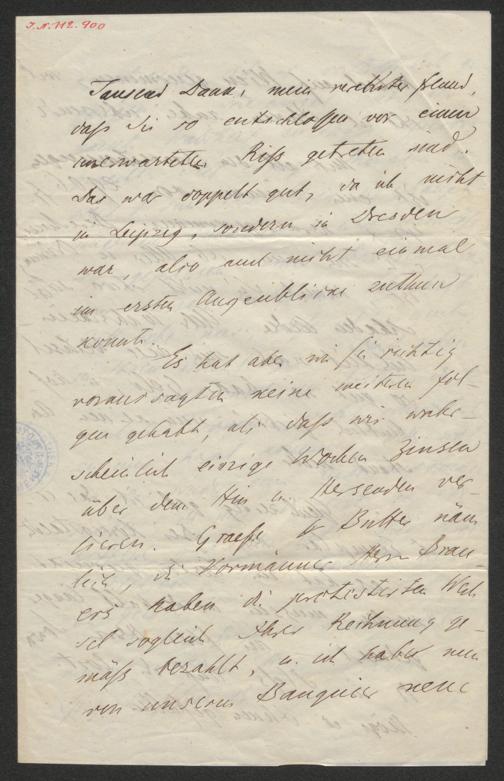 I.N. 112.900
Tausend Dank, mein verehrter Freund,
daß Sie so entschlossen vor einen
unerwarteten Riß getreten sind.
Das war doppelt gut, da ich nicht
in Leipzig, sondern in Dresden
war, also auch nicht einmal
im ersten Augenblicke
konnte.
Es hat aber wie Sie richtig
voraussagten keine weiteren Fol-
gen gehabt, als daß wir wahr-
scheinlich einige Wochen Zinsen
über dem Hin u. Hersenden ver-
lieren. Graefe & näm
lich, die Vormänner Herrn Brau
ers haben die protestirten Wech
sel sogleich Ihrer Rechnung ge-
mäß bezahlt, u. ich habe nun
von unserm Banquier neue